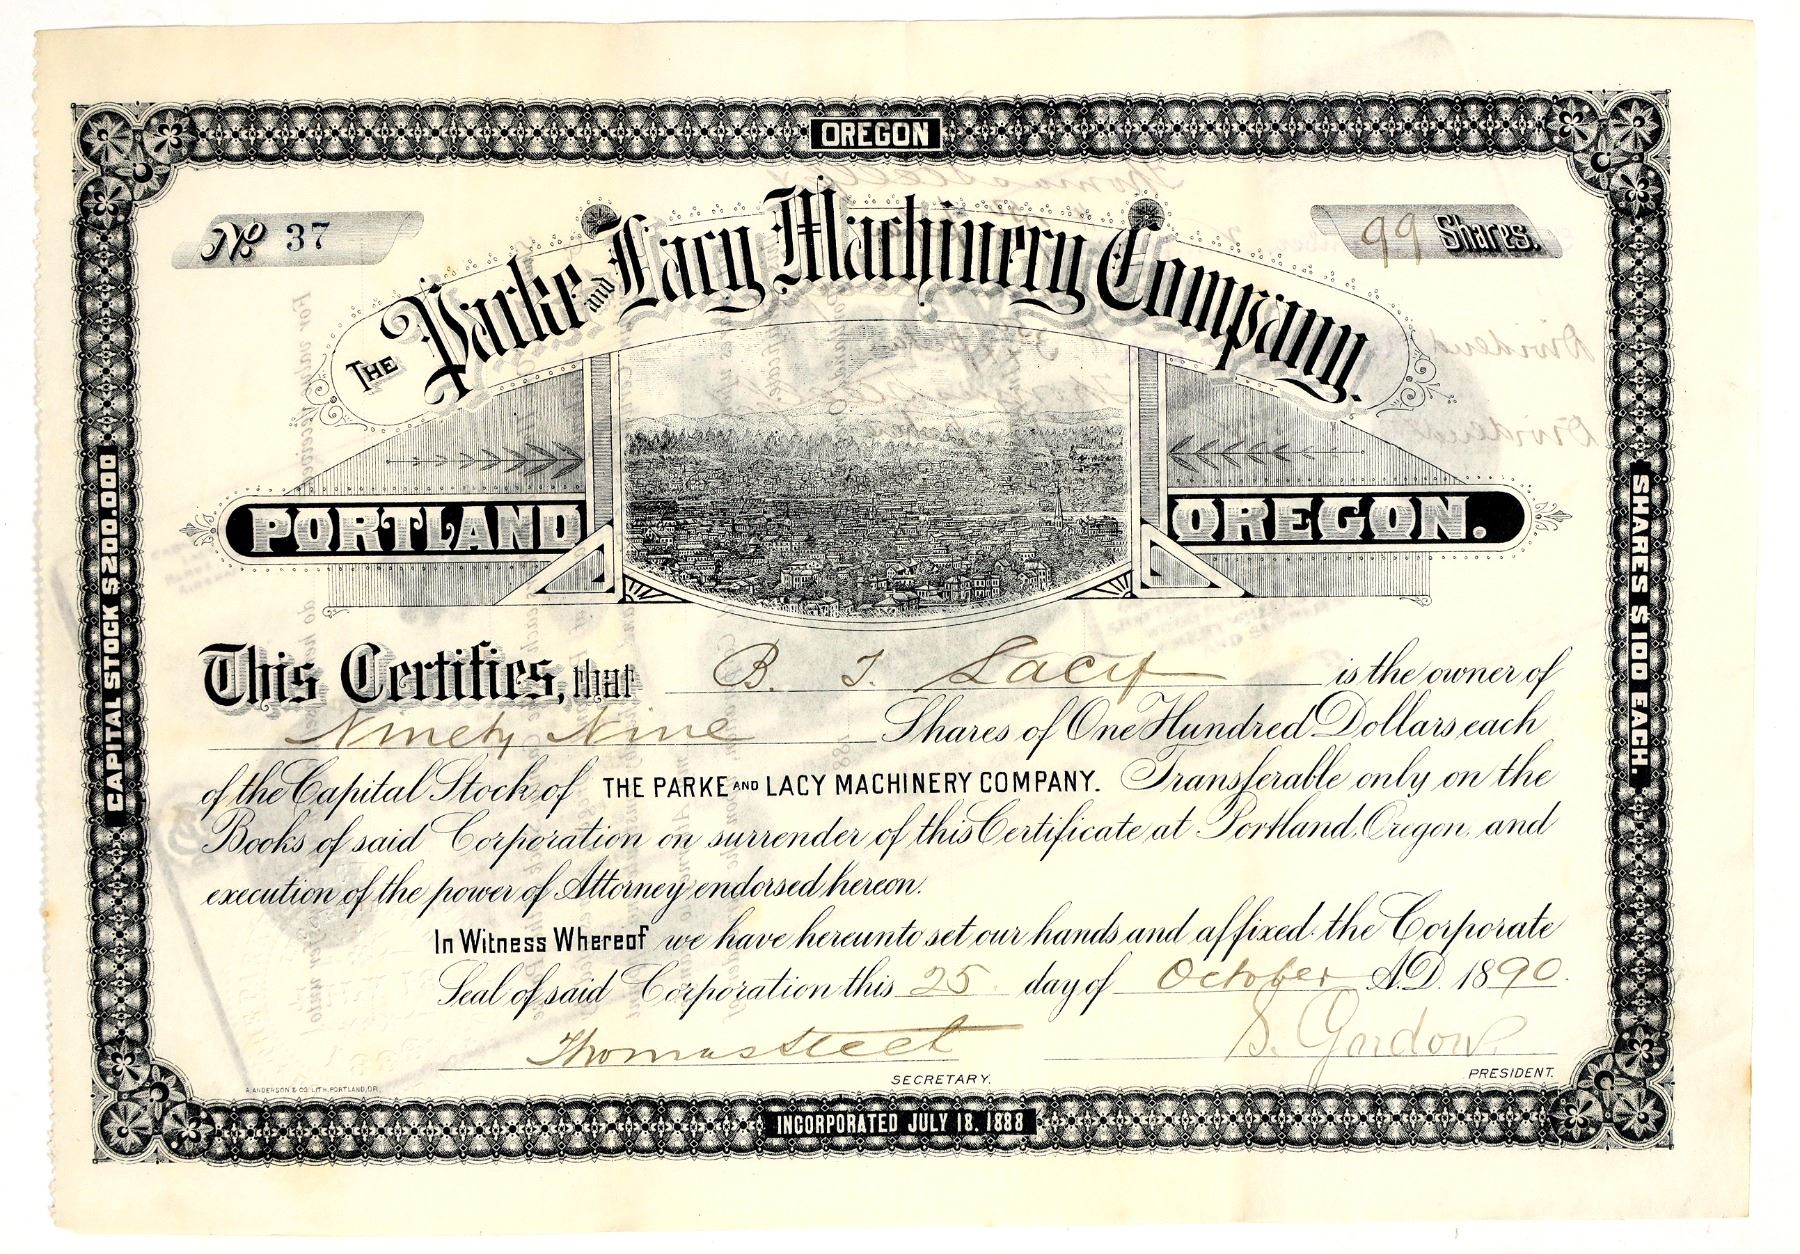 OREGON
No 37
99 Shares.
THE Parke and Lacy Machinery Company.
PORTLAND OREGON.
CAPITAL STOCK $200.000
SHARES $100 EACH.
This Certifies, that B. T. Lacy is the owner of
Ninety Nine Shares of One Hundred Dollars each
of the Capital Stock of THE PARKE AND LACY MACHINERY COMPANY. Transferable only on the
Books of said Corporation on surrender of this Certificate at Portland, Oregon, and
execution of the power of Attorney endorsed hereon.
In Witness Whereof we have hereunto set our hands and affixed the Corporate
Seal of said Corporation this 25 day of October A.D. 1890.
Thomas Steel S. Gordow
SECRETARY. PRESIDENT.
A. ANDERSON & CO. LITH. PORTLAND, OR.
INCORPORATED JULY 18, 1888